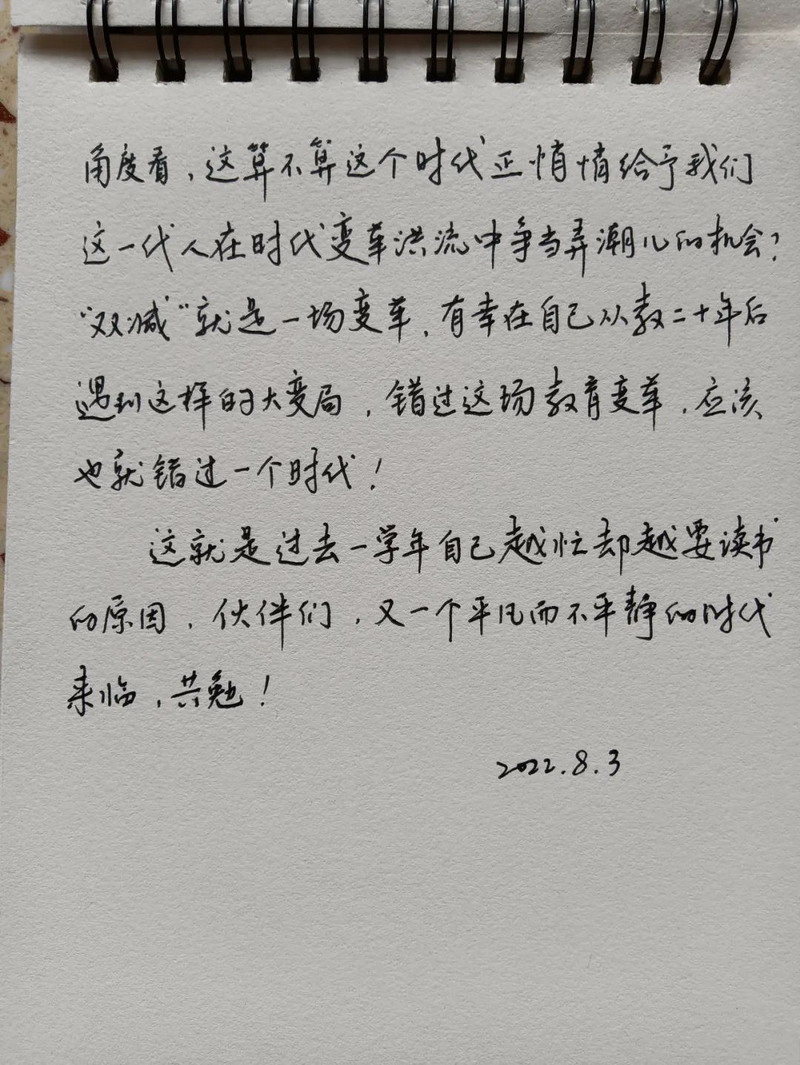 角度看，这算不算这个时代正悄悄给予我们
这一代人在时代变革洪流中争当弄潮儿的机会？
“双减”就是一场变革，有幸在自己从教二十年后
遇到这样的大变局，错过这场教育变革，应该
也就错过一个时代！
这就是过去一学年自己越忙却越要读书
的原因，伙伴们，又一个平凡而不平静的时代
来临，共勉！
2022.8.3